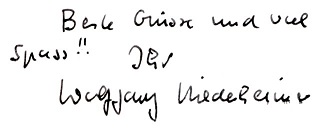 Beste Grüsse und viel
Spass!! Ihr
Wolfgang Niederheimer